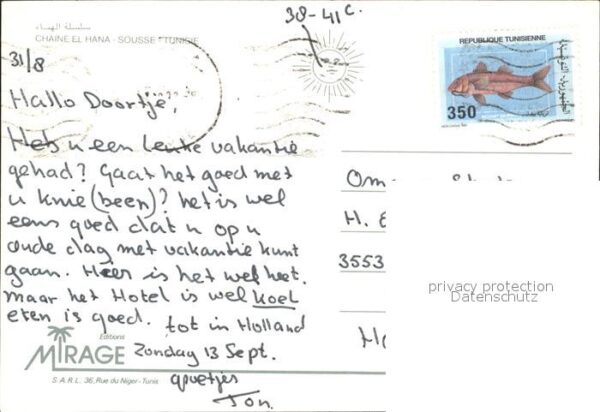 38-41 C.
سلسلة الهناء
CHAINE EL HANA - SOUSSE - TUNISIE
REPUBLIQUE TUNISIENNE
350
31/8
Hallo Doortje,
Heb u een leuke vakantie
gehad? Gaat het goed met
u knie (been)? het is wel
eens goed dat u op u
oude dag met vakantie kunt
gaan. Hier is het wel heet.
maar het Hotel is wel koel
eten is goed. tot in Holland
Zondag 13 Sept.
groetjes
Ton.
Om
H.
3553
Ho
privacy protection
Datenschutz
Editions
MIRAGE
S.A.R.L. 36, Rue du Niger - Tunis